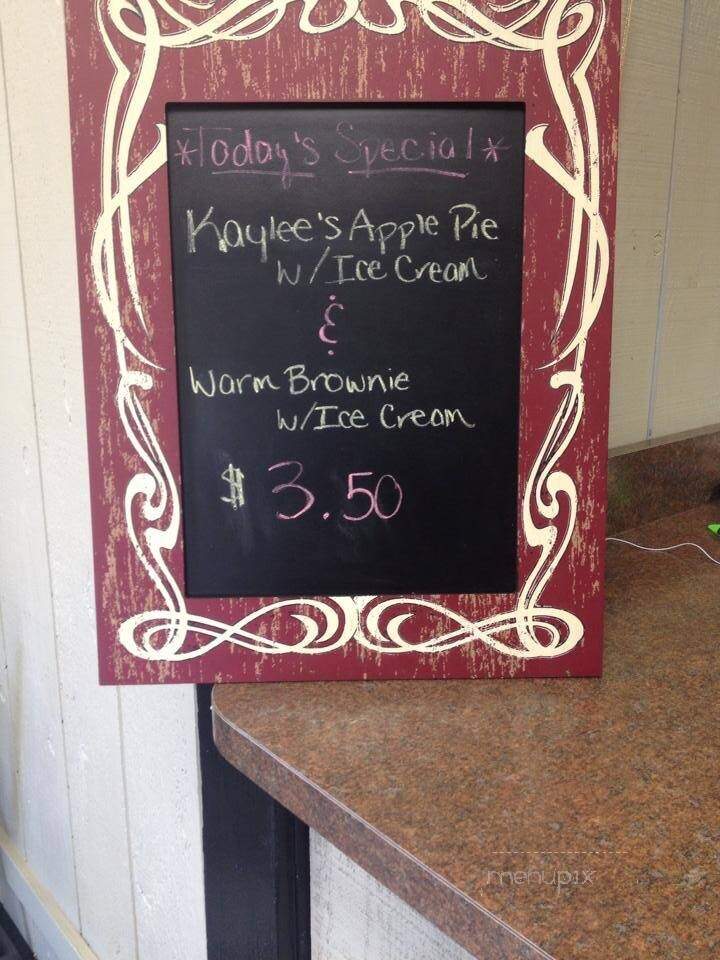 *Today's Special*
Kaylee's Apple Pie
w/Ice Cream
&
Warm Brownie
w/Ice Cream
$3.50
menupix